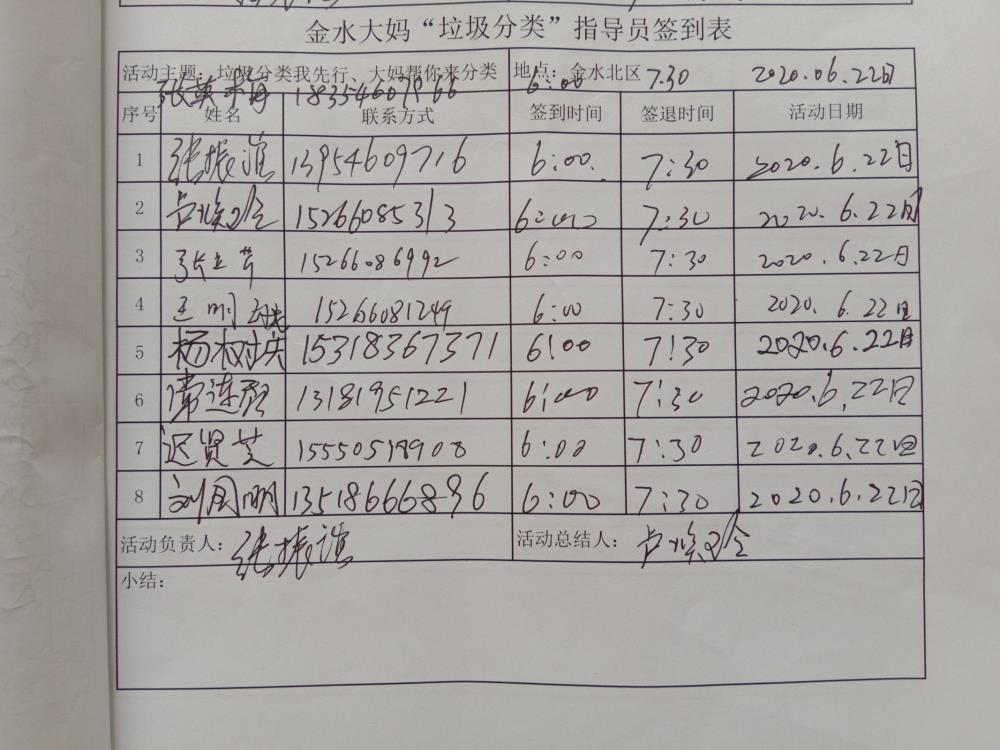 金水大妈“垃圾分类”指导员签到表
活动主题：垃圾分类我先行、大妈帮你来分类 地点：金水北区
张英 6:00 7:30 2020.06.22日
序号 姓名 联系方式 签到时间 签退时间 活动日期
1 张振谊 13954609716 6:00. 7:30 2020.6.22日
2 卢焕 15266085313 6:00 7:30 2020.6.22日
3 张 15266086992 6:00 7:30 2020.6.22日
4 王明 15266081249 6:00 7:30 2020.6.22日
5 杨树 15318367371 6:00 7:30 2020.6.22日
6 常连 13181951221 6:00 7:30 2020.6.22日
7 迟贤芝 15550519908 6:00 7:30 2020.6.22日
8 刘国明 13518666896 6:00 7:30 2020.6.22日
活动负责人：张振谊 活动总结人：卢焕
小结：